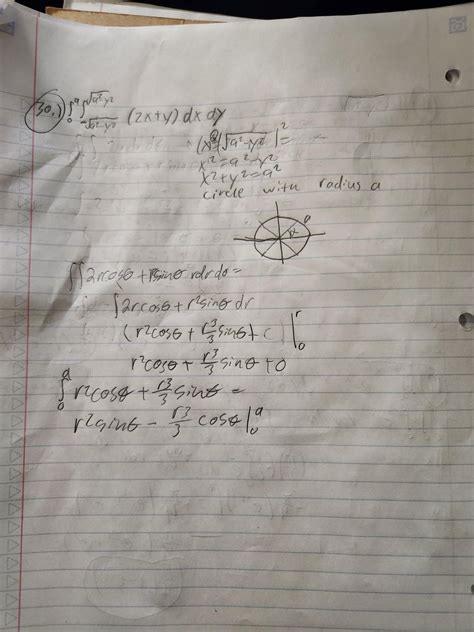 30.) ∫₀ᵃ ∫_{-√a²-y²}^{√a²-y²} (2x+y) dx dy
(x = √a²-y²)² =
x² = a² - y²
x² + y² = a²
circle with radius a
a
∫∫ 2rcosθ + rsinθ rdrdθ =
∫ 2rcosθ + r²sinθ dr
(r²cosθ + r³/3 sinθ + c) |₀ʳ
r²cosθ + r³/3 sinθ + 0
∫₀ᵃ r²cosθ + r³/3 sinθ =
r²sinθ - r³/3 cosθ |₀ᵃ